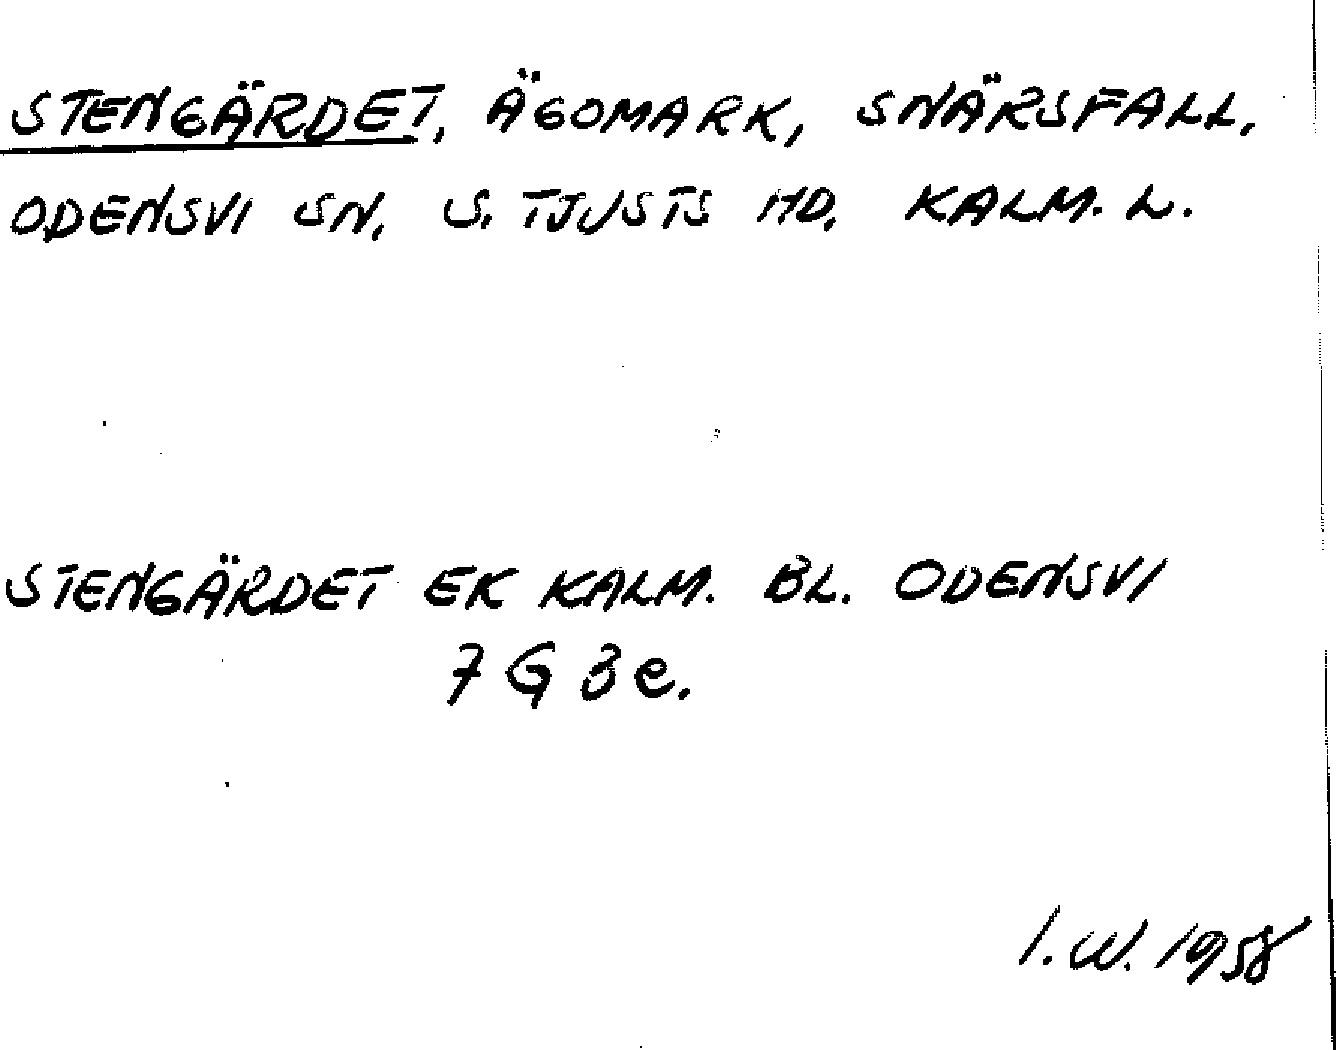 STENGÄRDET, ÄGOMARK, SNÄRSFALL,
ODENSVI SN. S. TJUSTS HD. KALM. L.
STENGÄRDET EK KALM. BL. ODENSVI
7 G 3 e.
I.W. 1958